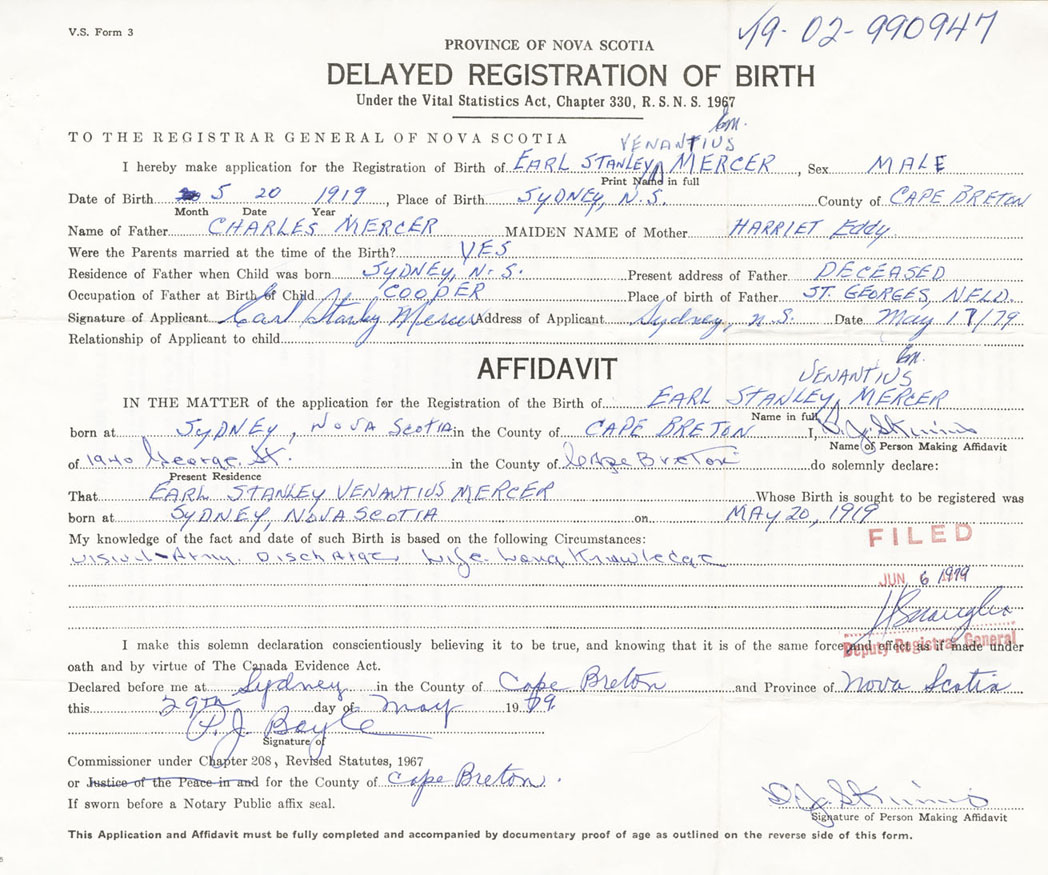 V.S. Form 3
19-02-990947
PROVINCE OF NOVA SCOTIA
DELAYED REGISTRATION OF BIRTH
Under the Vital Statistics Act, Chapter 330, R.S.N.S. 1967
TO THE REGISTRAR GENERAL OF NOVA SCOTIA
VENANTIUS
I hereby make application for the Registration of Birth of EARL STANLEY MERCER, Sex MALE
Print Name in full
Date of Birth 5 20 1919, Place of Birth SYDNEY, N.S. County of CAPE BRETON
Month Date Year
Name of Father CHARLES MERCER MAIDEN NAME of Mother HARRIET Eddy
Were the Parents married at the time of the Birth? YES
Residence of Father when Child was born SYDNEY, N.S. Present address of Father DECEASED
Occupation of Father at Birth of Child COOPER Place of birth of Father ST. GEORGES, NFLD.
Signature of Applicant Earl Stanley Mercer Address of Applicant Sydney, N.S. Date May 17/79
Relationship of Applicant to child
AFFIDAVIT
VENANTIUS
IN THE MATTER of the application for the Registration of the Birth of EARL STANLEY MERCER
Name in full
born at SYDNEY, NOVA SCOTIA in the County of CAPE BRETON I,
Name of Person Making Affidavit
of 1940 George St. in the County of Cape Breton do solemnly declare:
Present Residence
That EARL STANLEY VENANTIUS MERCER Whose Birth is sought to be registered was
born at SYDNEY, NOVA SCOTIA on MAY 20, 1919
My knowledge of the fact and date of such Birth is based on the following Circumstances:
Army Discharge Life Long Knowledge
FILED
JUN 6 1979
Deputy Registrar General
I make this solemn declaration conscientiously believing it to be true, and knowing that it is of the same force and effect as if made under
oath and by virtue of The Canada Evidence Act.
Declared before me at Sydney in the County of Cape Breton and Province of Nova Scotia
this 29th day of May 1979
P.J. Boyle
Signature of
Commissioner under Chapter 208, Revised Statutes, 1967
or Justice of the Peace in and for the County of Cape Breton.
If sworn before a Notary Public affix seal.
Signature of Person Making Affidavit
This Application and Affidavit must be fully completed and accompanied by documentary proof of age as outlined on the reverse side of this form.